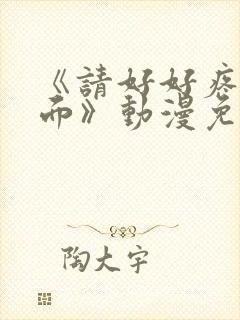 《請好好疼
而》動漫免
陶大宇